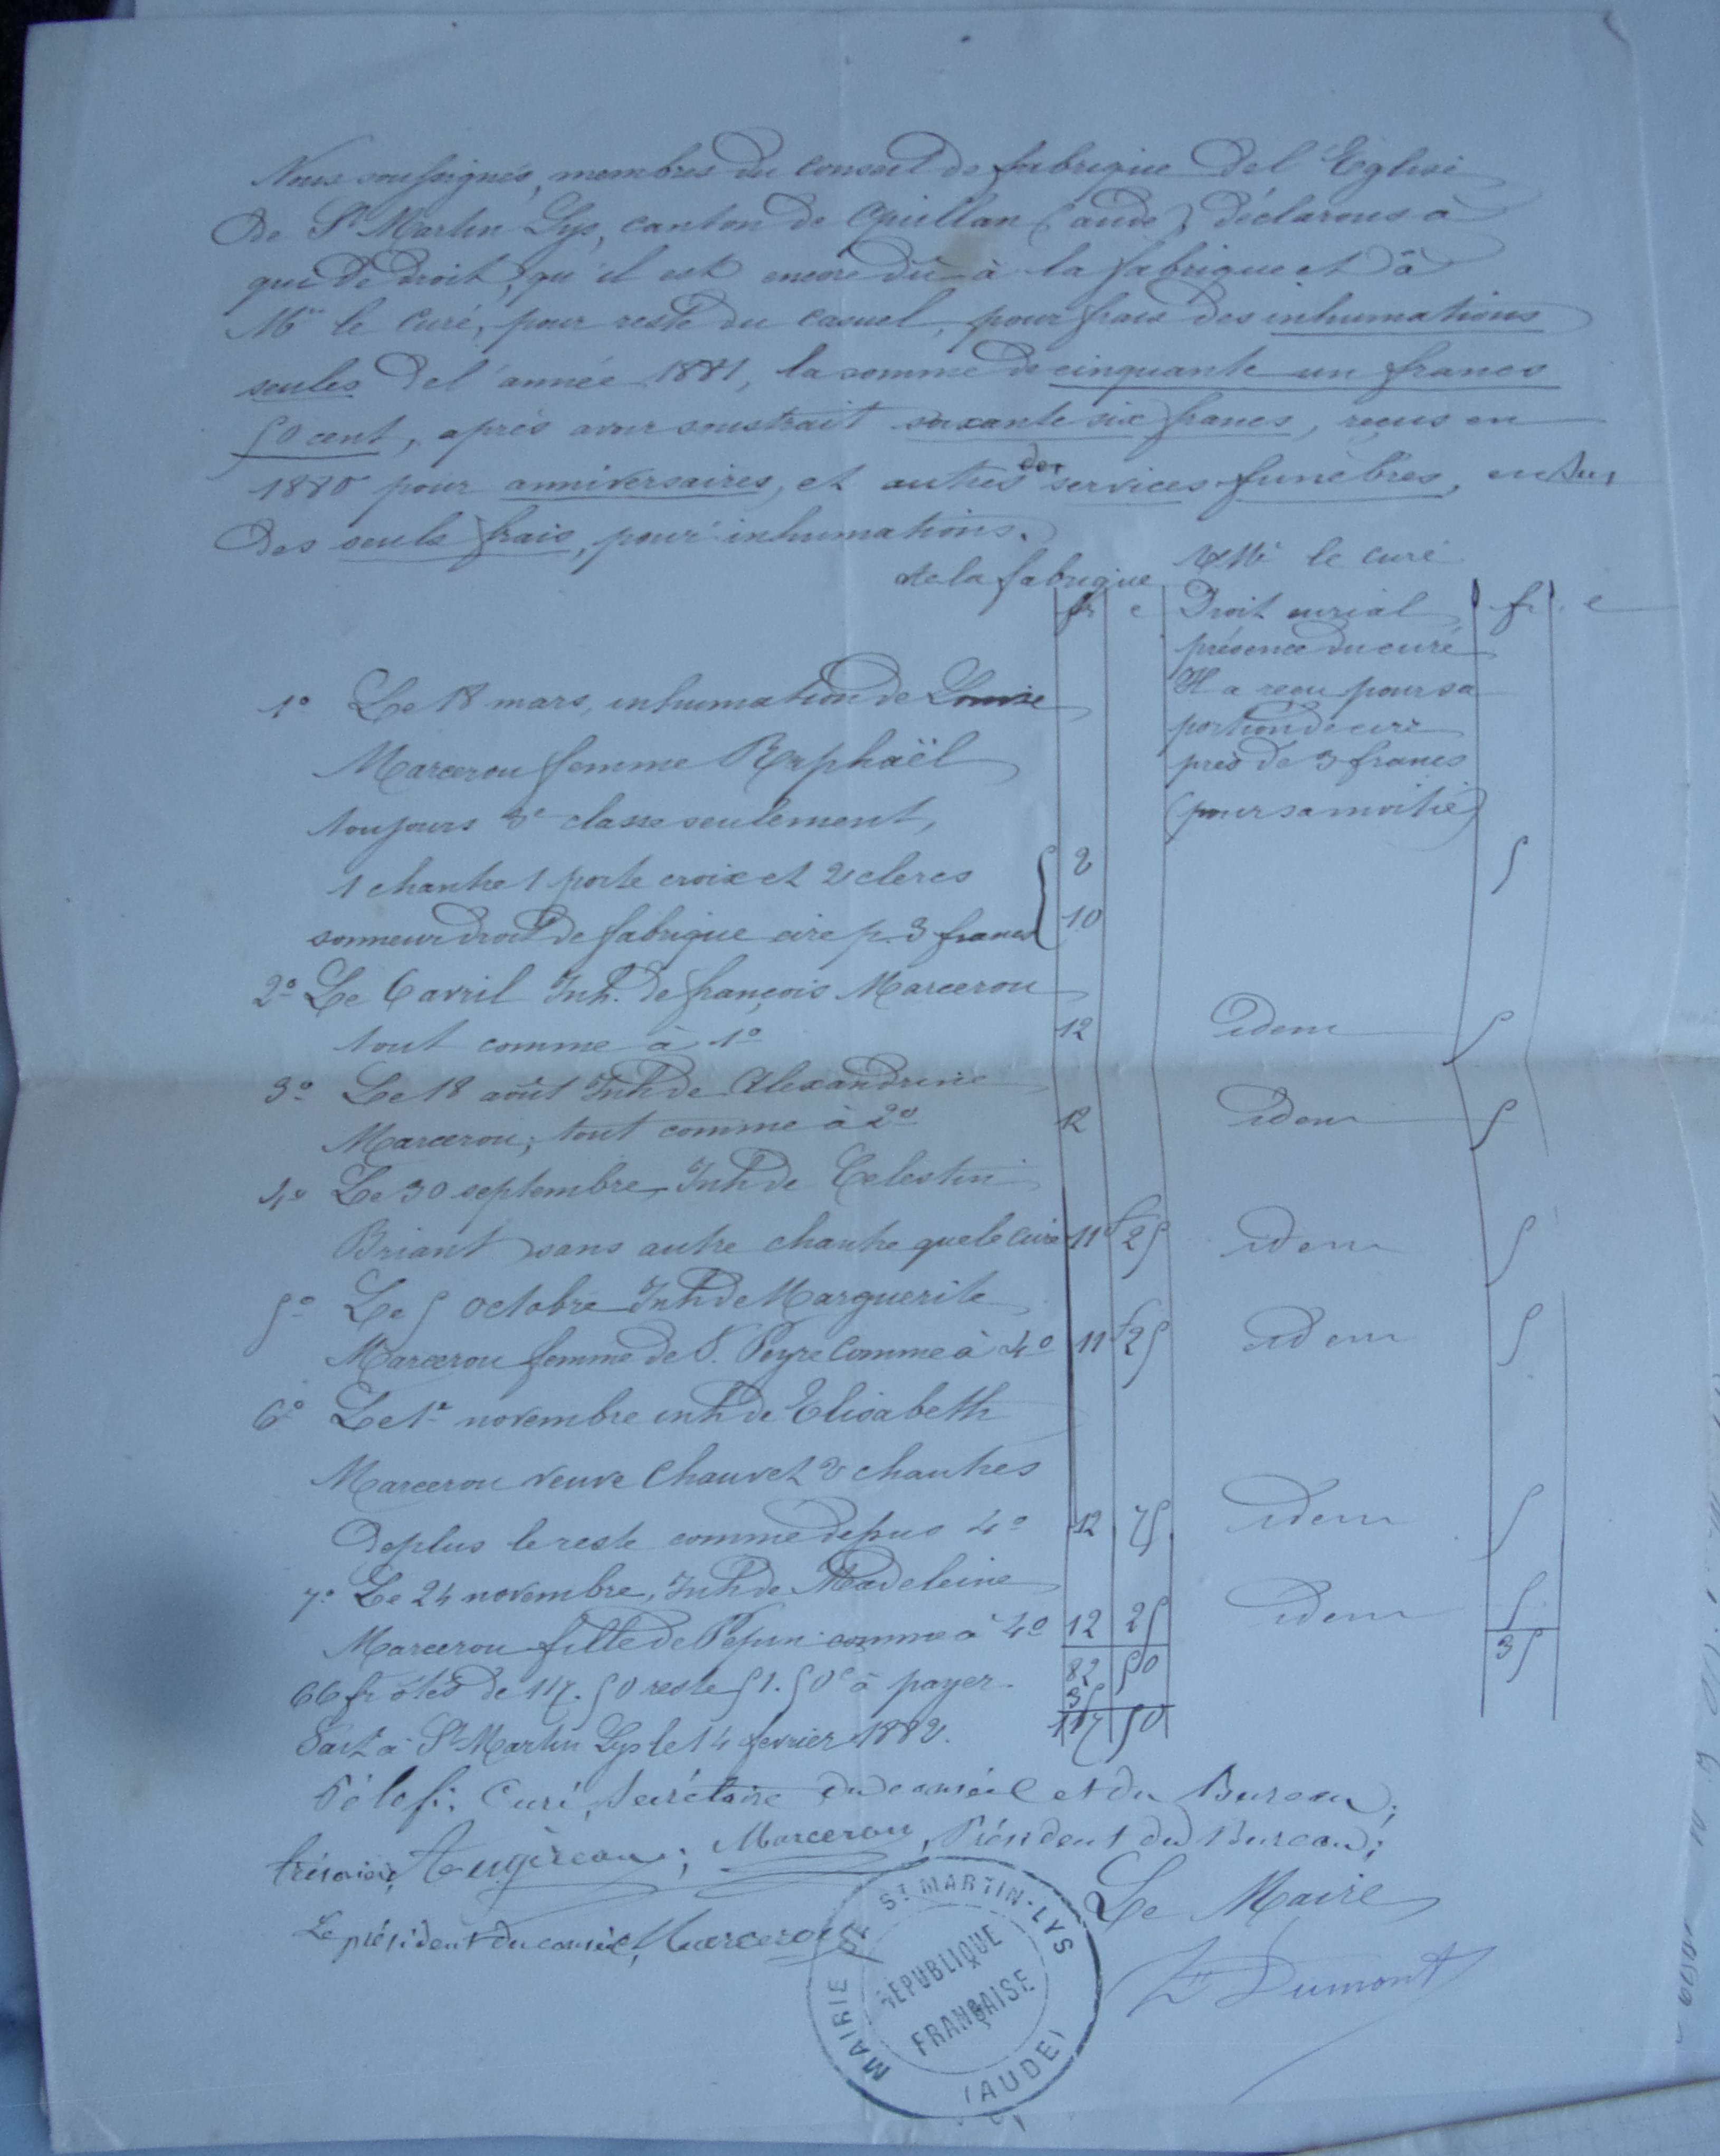 Nous soussignés, membres du conseil de fabrique de l'Eglise
de St Martin Lys, canton de Quillan (aude) déclarons à
qui de droit, qu'il est encore dû à la fabrique et à
Mr le curé, pour reste du casuel, pour frais des inhumations
seules de l'année 1881, la somme de cinquante un francs
50 cent, après avoir soustrait soixante six francs, reçus en
1880 pour anniversaires, et autres services funèbres, en sus
des seuls frais, pour inhumations.
de la fabrique
fr c
à Mr le curé
Droit curial fr. c
présence du curé
Il a reçu pour sa
portion de cire
près de 3 francs
(pour sa moitié)
1o Le 18 mars, inhumation de Louise
Marcerou femme Raphaël
toujours 3e classe seulement,
1 chantre 1 porte croix et 2 clercs 2 5
sonneur droit de fabrique cire p. 3 francs 10
2o Le 6 avril Inh. de françois Marcerou
tout comme à 1o 12 idem 5
3o Le 18 août Inh de Alexandrine
Marcerou, tout comme à 2o 12 idem 5
4o Le 30 septembre, Inh de Celestin
Briant sans autre chantre que le curé 11f 25 idem 5
5o Le 5 octobre Inh de Marguerite
Marcerou femme de S. Peyre comme à 4o 11f 25 idem 5
6o Le 1r novembre inh de Elisabeth
Marcerou veuve Chauvet 2 chantres
de plus le reste comme depuis 4o 12 75 idem 5
7o Le 24 novembre, Inh de Madeleine
Marcerou fille de Pepin comme à 4o 12 25 idem 5
82 50 35
66 fr ôtés de 117.50 reste 51.50c à payer.
35
117 50
Fait à St Martin Lys le 14 fevrier 1882.
Curé, Secrétaire du conseil et du Bureau;
trésorier, Marcerou, Président du Bureau;
Le Maire
Le président du conseil, Marcerou
Dumont
MAIRIE DE ST MARTIN-LYS
RÉPUBLIQUE
FRANÇAISE
(AUDE)